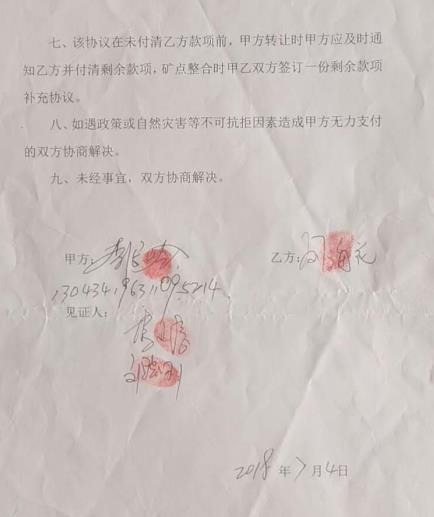 七、该协议在未付清乙方款项前，甲方转让时甲方应及时通
知乙方并付清剩余款项，矿点整合时甲乙双方签订一份剩余款项
补充协议。
八、如遇政策或自然灾害等不可抗拒因素造成甲方无力支付
的双方协商解决。
九、未经事宜，双方协商解决。
甲方： 乙方：
见证人：
2018年7月4日